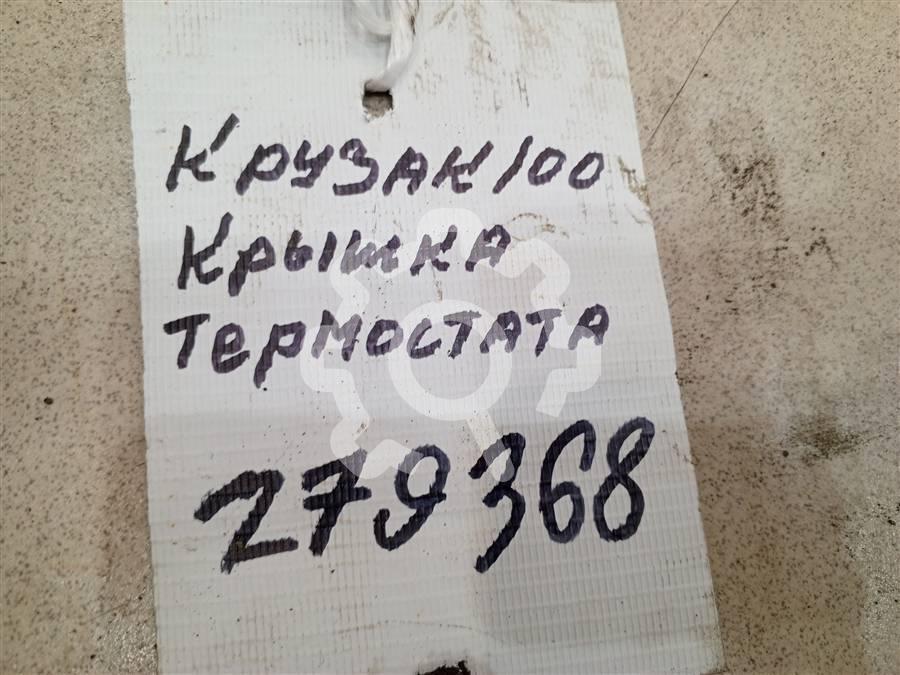 Крузак 100
Крышка
термостата
279368